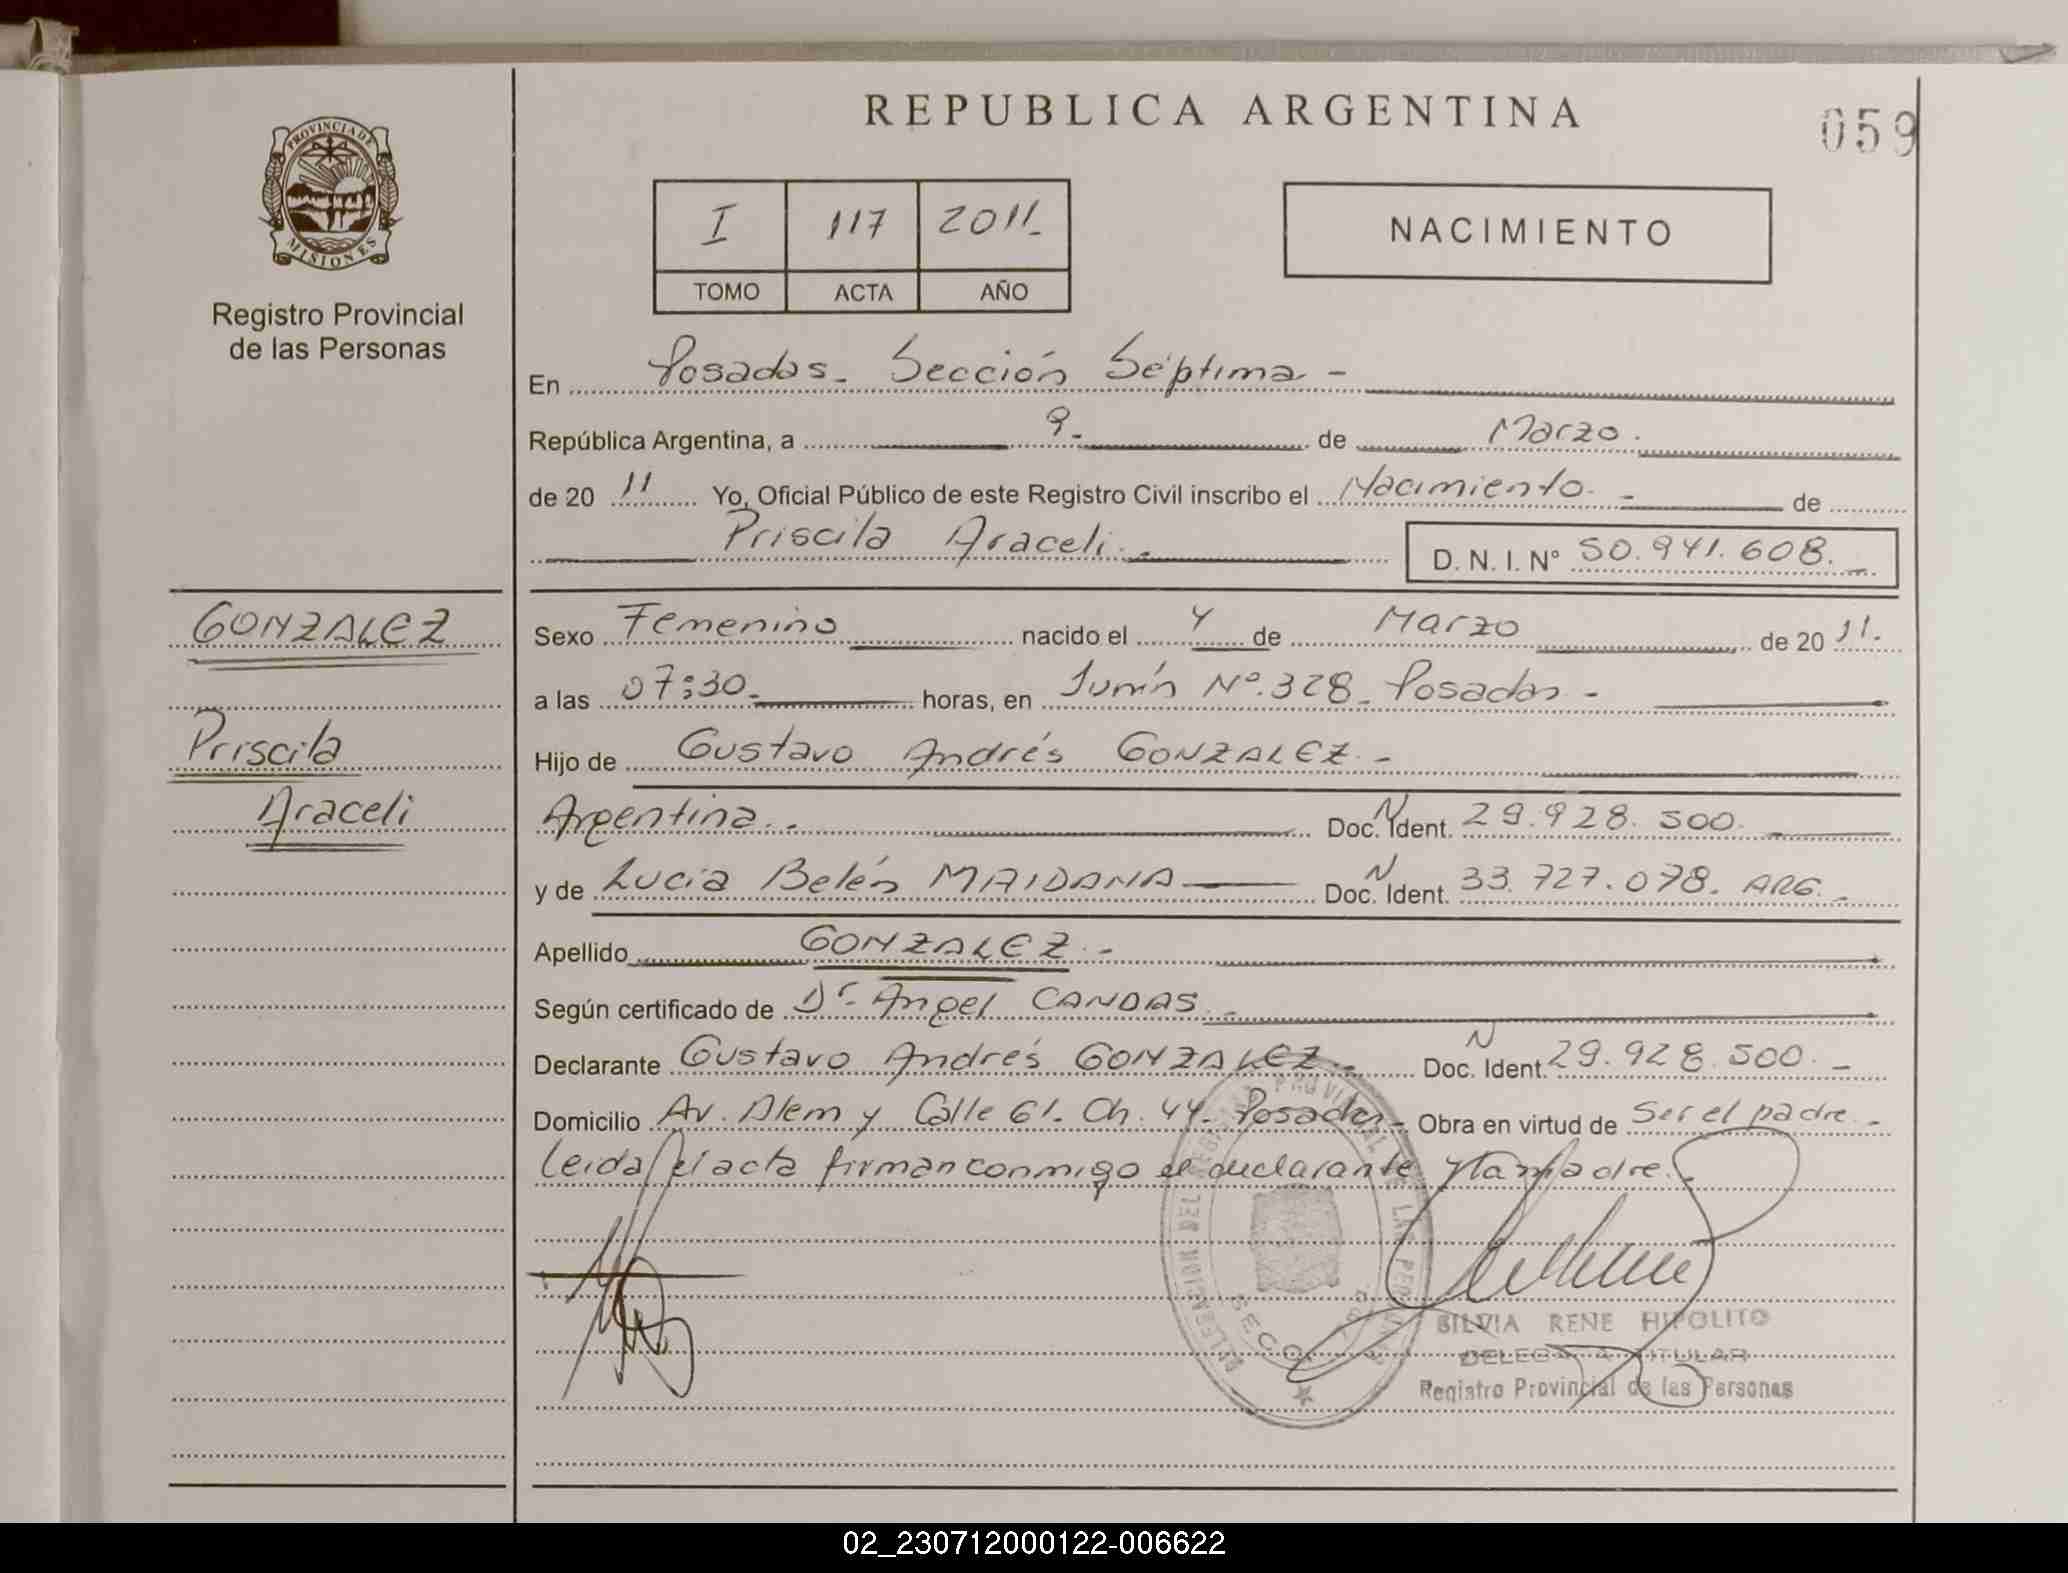 REPUBLICA ARGENTINA
059
PROVINCIA DE
MISIONES
Registro Provincial
de las Personas
I 117 2011.
TOMO ACTA AÑO
NACIMIENTO
En Posadas. Sección Séptima -
República Argentina, a 9. de Marzo.
de 20 11 Yo, Oficial Público de este Registro Civil inscribo el Nacimiento. - de
Priscila Araceli. -
D. N. I. Nº 50.941.608. -
GONZALEZ
Priscila
Araceli
Sexo Femenino nacido el 4 de Marzo de 20 11.
a las 07:30. horas, en Junín Nº. 328. Posadas -
Hijo de Gustavo Andrés GONZALEZ. -
Argentina. - Doc. N Ident. 29.928.500.
y de Lucia Belén MAIDANA Doc. N Ident. 33.727.078. ARG. -
Apellido GONZALEZ. -
Según certificado de Dr. Angel CANDAS. -
Declarante Gustavo Andrés GONZALEZ. - Doc. N Ident. 29.928.500. -
Domicilio Av. Alem y Calle 61. Ch. 44. Posadas - Obra en virtud de Ser el padre. -
Leida el acta firman conmigo el declarante y la madre. -
DELEGACION DEL REGISTRO PROVINCIAL DE LAS PERSONAS
SILVIA RENE HIPOLITO
DELEGADA TITULAR
Registro Provincial de las Personas
02_230712000122-006622